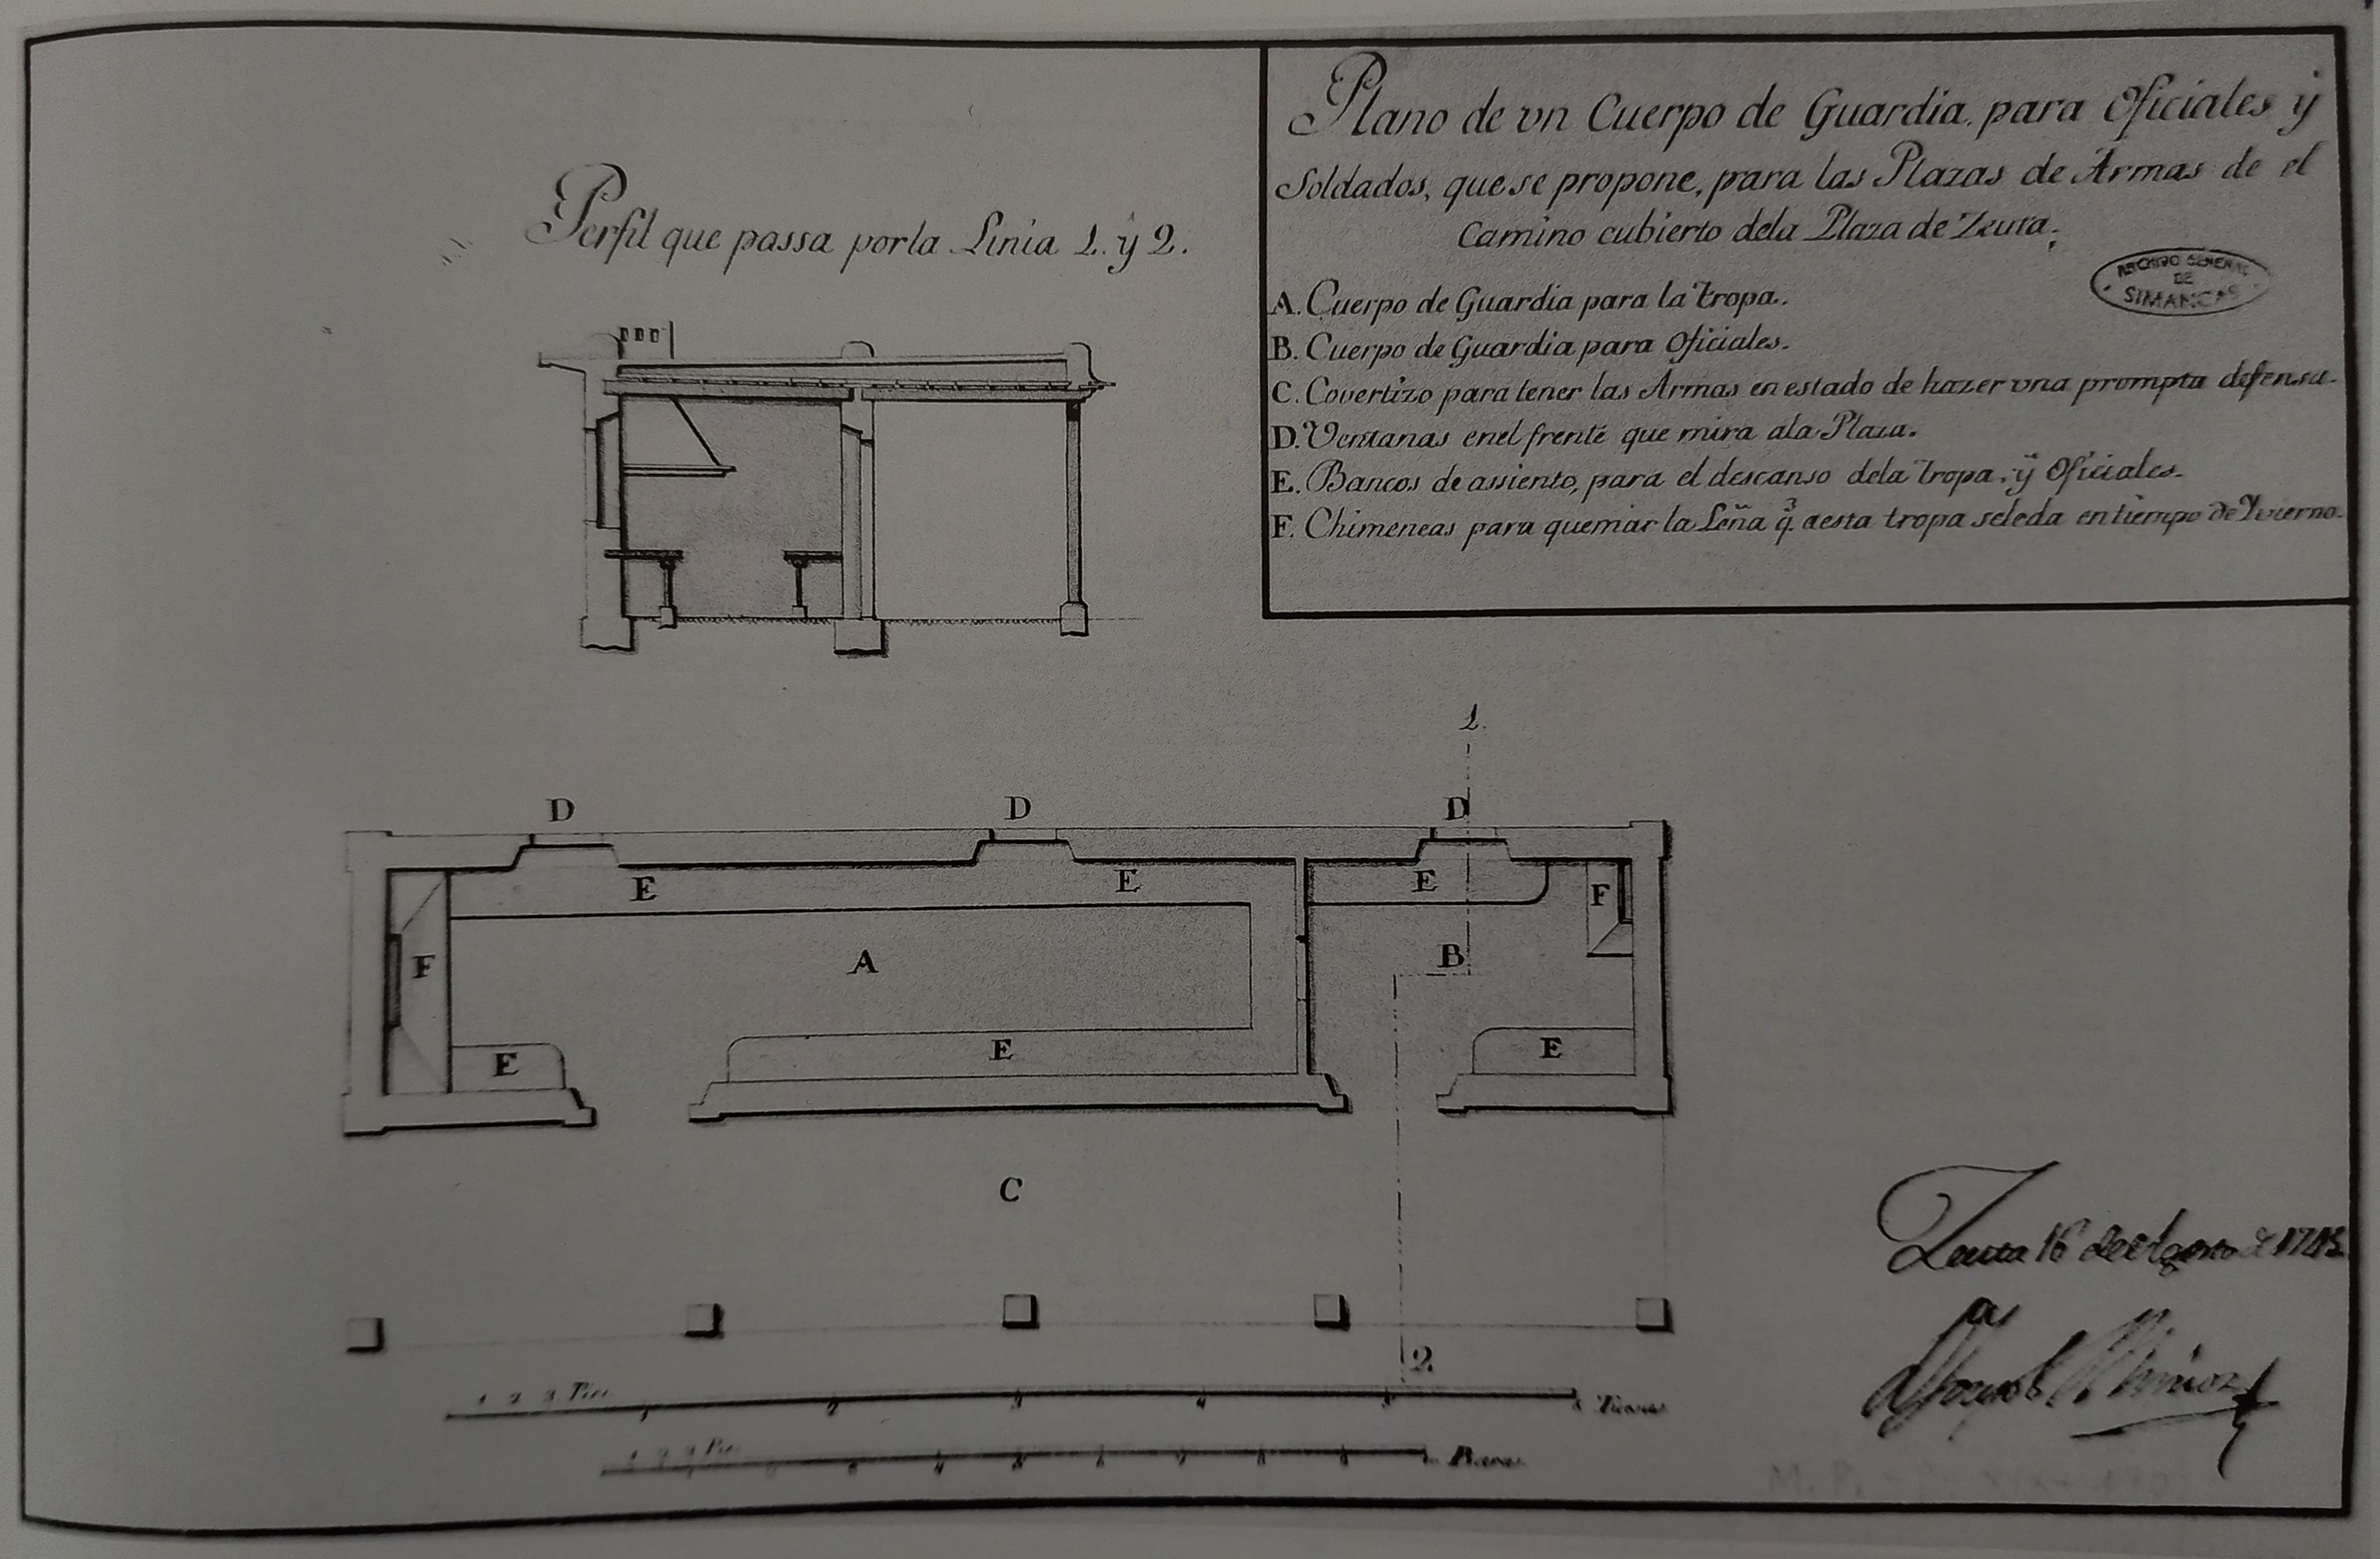 Plano de vn Cuerpo de Guardia, para Oficiales y
Soldados, que se propone, para las Plazas de Armas de el
Camino cubierto dela Plaza de Zeuta;
ARCHIVO GENERAL
DE
SIMANCAS
A. Cuerpo de Guardia para la tropa.
B. Cuerpo de Guardia para Oficiales.
C. Covertizo para tener las Armas en estado de hazer vna prompta defensa.
D. Ventanas enel frente que mira ala Plaza.
E. Bancos de assiento, para el descanso dela tropa, ÿ Oficiales.
F. Chimeneas para quemar la Leña q.e aesta tropa seleda entiempo de Yvierno.
Perfil que passa porla Linia 1. y 2.
1.
D D D
E E E F
A B
F
E E E
C
2.
1 2 3 Pies
1 2 3 4 5 6
1 2 3
Zeuta 16 de Agosto